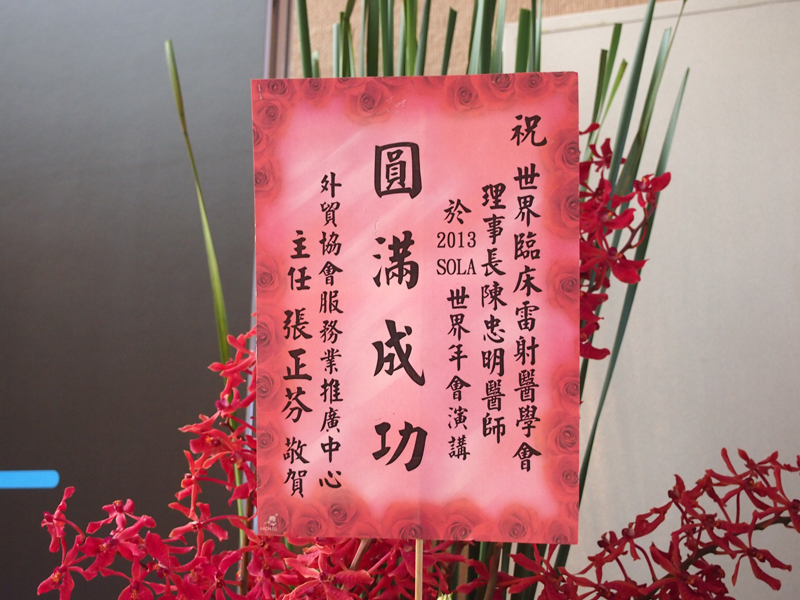 祝
世界臨床雷射醫學會
理事長陳忠明醫師
於2013 SOLA世界年會演講
圓滿成功
外貿協會服務業推廣中心
主任 張正芬 敬賀